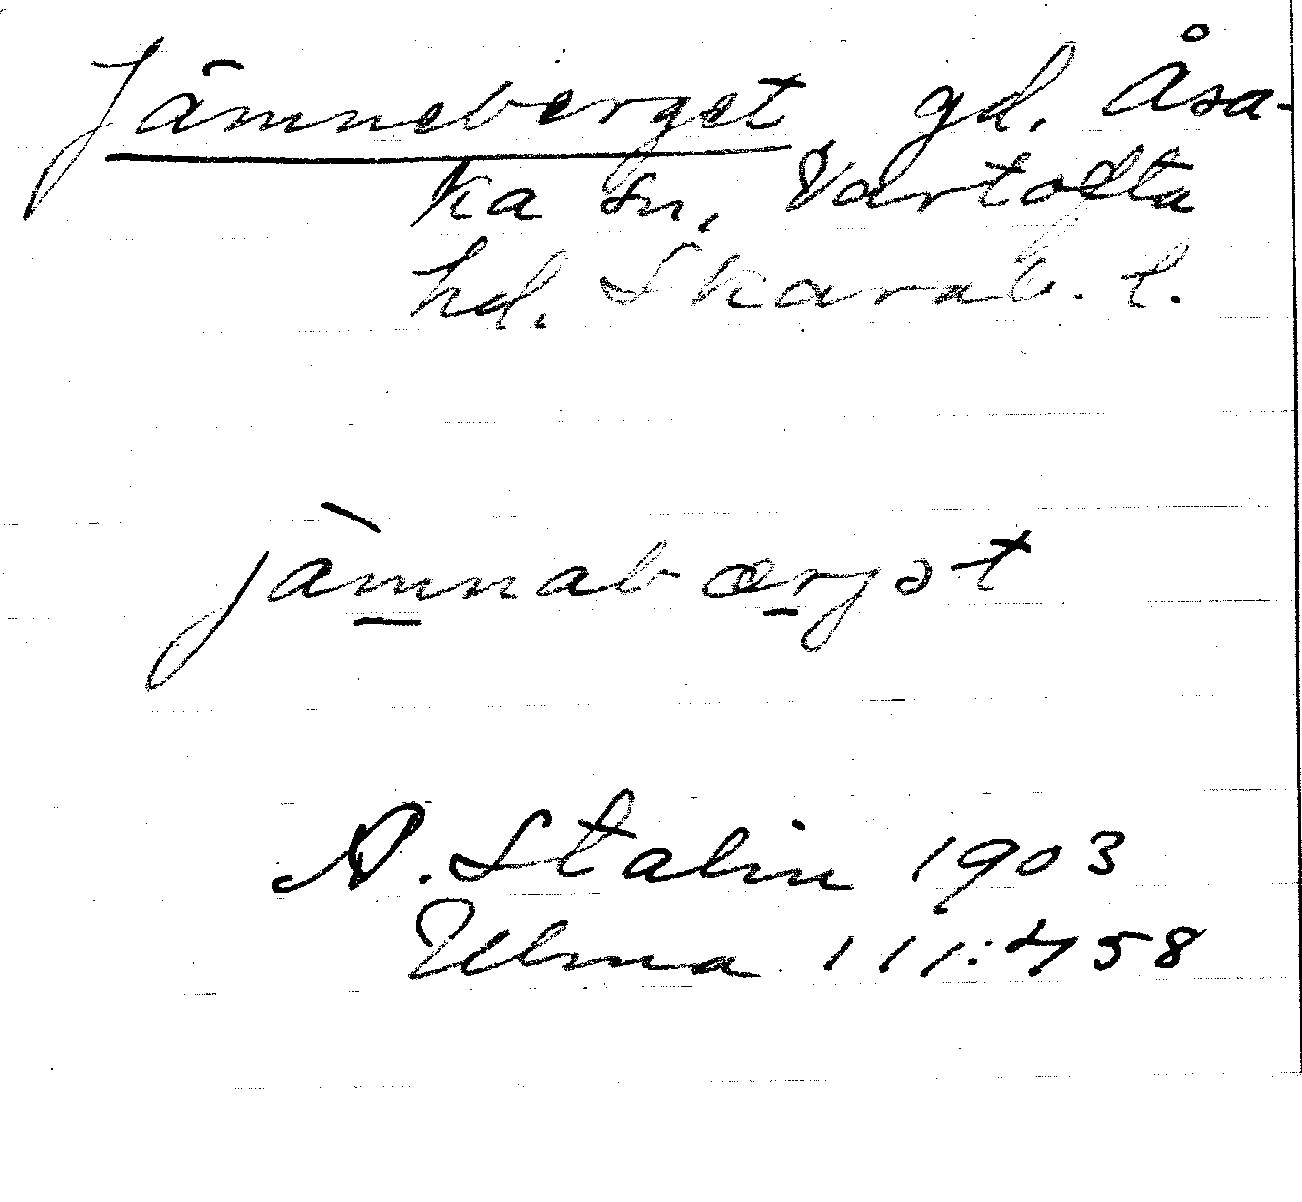 Jämneberget gd. Åsa-
ka sn, Vartofta
hd. Skarab. l.
jàmnabærgət
A. Stalin 1903
Ulma 111:458